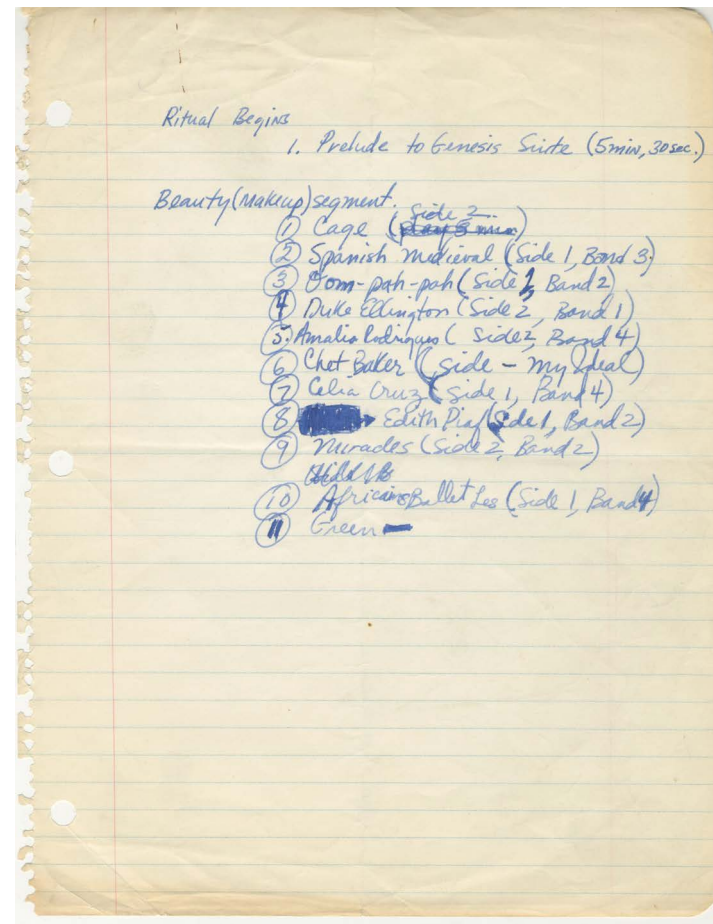 Ritual Begins
1. Prelude to Genesis Suite (5min, 30sec.)
Beauty (Makeup) segment.
Side 2
1 Cage (play 3 min)
2 Spanish Medieval (Side 1, Band 3)
3 Oom-pah-pah (Side 1, Band 2)
4 Duke Ellington (Side 2, Band 1)
5. Amalia Rodrigues (Side 2, Band 4)
6 Chet Baker (Side - My Ideal)
7 Celia Cruz (Side 1, Band 4)
8 Edith Piaf (Side 1, Band 2)
9 (Side 2, Band 2)
10 Africains Ballet Les (Side 1, Band 4)
11 Green -